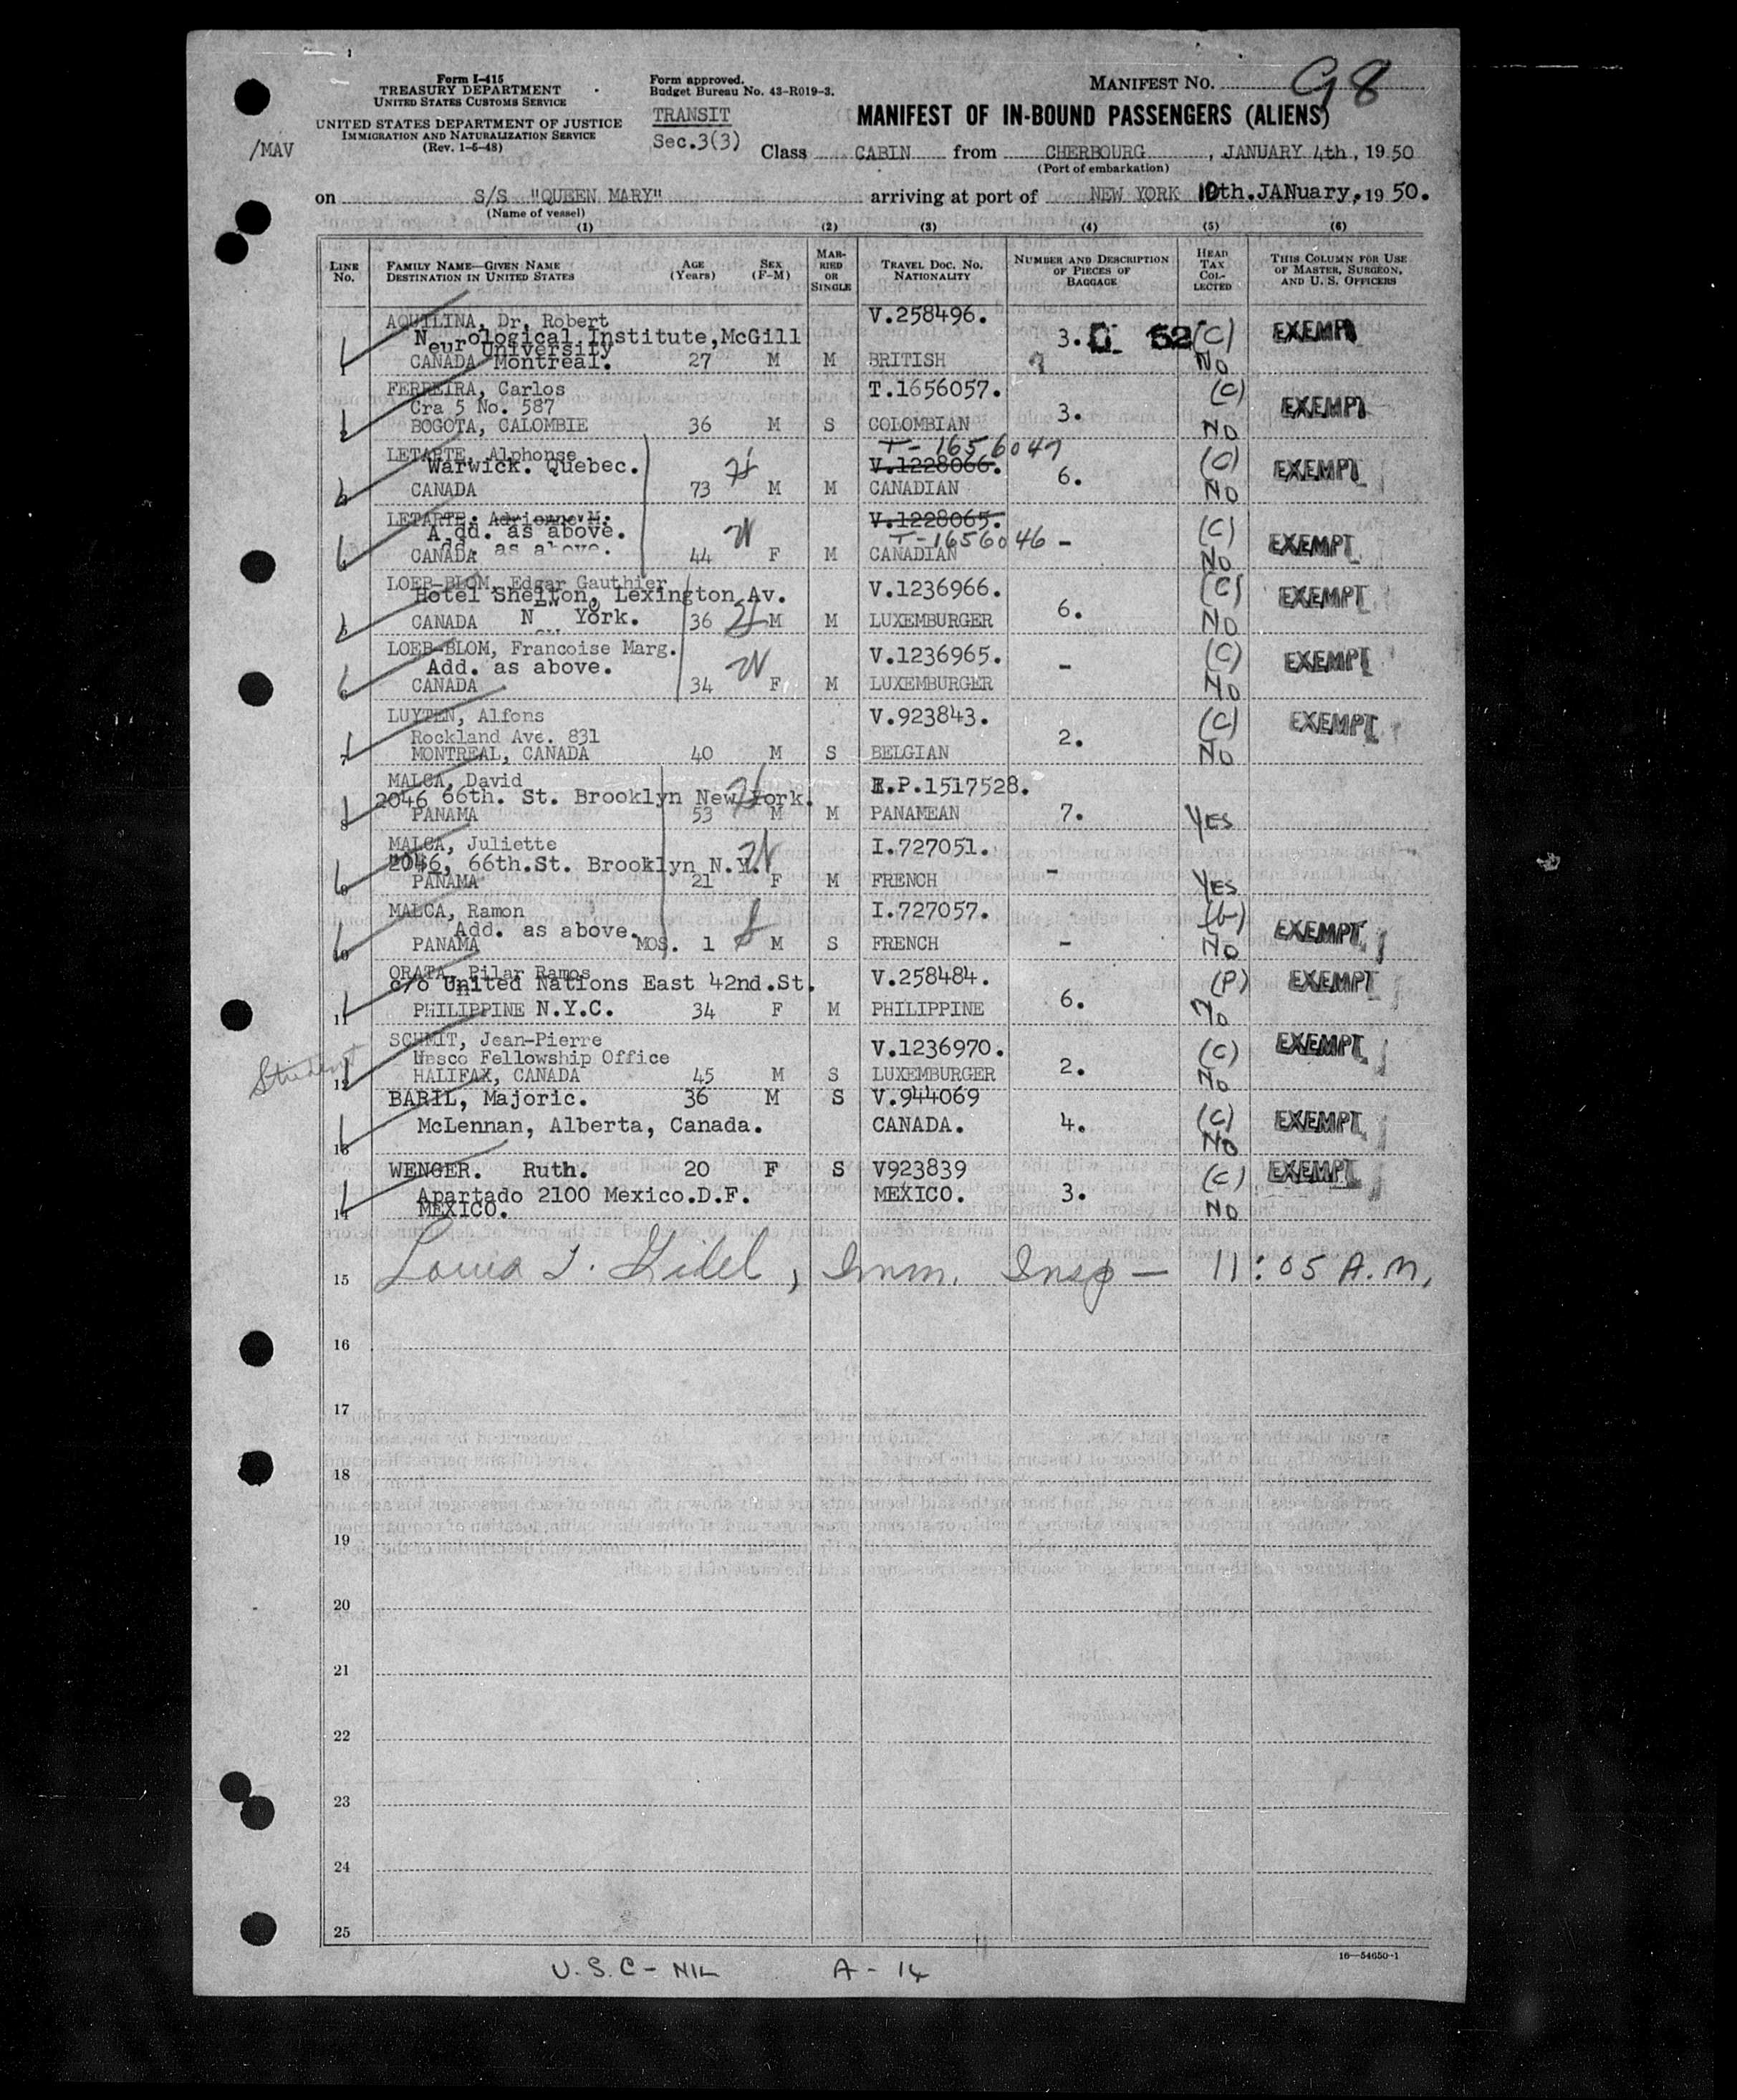 Form I-415
TREASURY DEPARTMENT
UNITED STATES CUSTOMS SERVICE
UNITED STATES DEPARTMENT OF JUSTICE
IMMIGRATION AND NATURALIZATION SERVICE
(Rev. 1-5-48)
/MAV
Form approved.
Budget Bureau No. 43-R019-3.
TRANSIT
Sec.3(3)
MANIFEST NO. G8
MANIFEST OF IN-BOUND PASSENGERS (ALIENS)
Class CABIN from CHERBOURG, JANUARY 4th, 1950
(Port of embarkation)
on S/S "QUEEN MARY" arriving at port of NEW YORK 10th.JANuary, 19 50.
(Name of vessel)
(1) (2) (3) (4) (5) (6)
LINE NO. FAMILY NAME—GIVEN NAME DESTINATION IN UNITED STATES AGE (Years) SEX (F-M) MARRIED OR SINGLE TRAVEL DOC. NO. NATIONALITY NUMBER AND DESCRIPTION OF PIECES OF BAGGAGE HEAD TAX COLLECTED THIS COLUMN FOR USE OF MASTER, SURGEON, AND U. S. OFFICERS
AQUILINA, Dr. Robert V.258496.
Neurological Institute,McGill University 3. 52 (C) EXEMPT
1 CANADA Montreal. 27 M M BRITISH No
FERREIRA, Carlos T.1656057. (C)
Cra 5 No. 587 3. EXEMPT
2 BOGOTA, CALOMBIE 36 M S COLOMBIAN No
LETARTE, Alphonse T-1656047
Warwick. Quebec. H V.1228066. 6. (C) EXEMPT
3 CANADA 73 M M CANADIAN No
LETARTE, Adrienne M. V.1228065.
Add. as above. W T-1656046 - (C) EXEMPT
4 CANADA as above. 44 F M CANADIAN No
LOEB-BLOM, Edgar Gauthier V.1236966. (C) EXEMPT
Hotel Shelton, Lexington Av. 6.
5 CANADA New York. 36 H M M LUXEMBURGER No
LOEB-BLOM, Francoise Marg. V.1236965. (C) EXEMPT
Add. as above. W -
6 CANADA 34 F M LUXEMBURGER No
LUYTEN, Alfons V.923843. (C) EXEMPT
Rockland Ave. 831 2.
7 MONTREAL, CANADA 40 M S BELGIAN No
MALCA, David E.P.1517528.
2046 66th. St. Brooklyn New York. H
8 PANAMA 53 M M PANAMEAN 7. YES
MALCA, Juliette I.727051.
2046, 66th.St. Brooklyn N.Y. W -
9 PANAMA 21 F M FRENCH YES
MALCA, Ramon I.727057. (b)
Add. as above. EXEMPT
10 PANAMA MOS. 1 M S FRENCH - No
ORATA, Pilar Ramos V.258484. (P) EXEMPT
c/o United Nations East 42nd.St. 6.
11 PHILIPPINE N.Y.C. 34 F M PHILIPPINE No
SCHMIT, Jean-Pierre V.1236970. (C) EXEMPT
Student Unesco Fellowship Office 2.
12 HALIFAX, CANADA 45 M S LUXEMBURGER No
BARIL, Majoric. 36 M S V.944069
McLennan, Alberta, Canada. CANADA. 4. (C) EXEMPT
13 No
WENGER. Ruth. 20 F S V923839 (C) EXEMPT
Apartado 2100 Mexico.D.F. MEXICO. 3.
14 MEXICO. No
15 Imm. Insp — 11:05 A.M.
16
17
18
19
20
21
22
23
24
25
16—54650-1
U.S.C - NIL A - 14